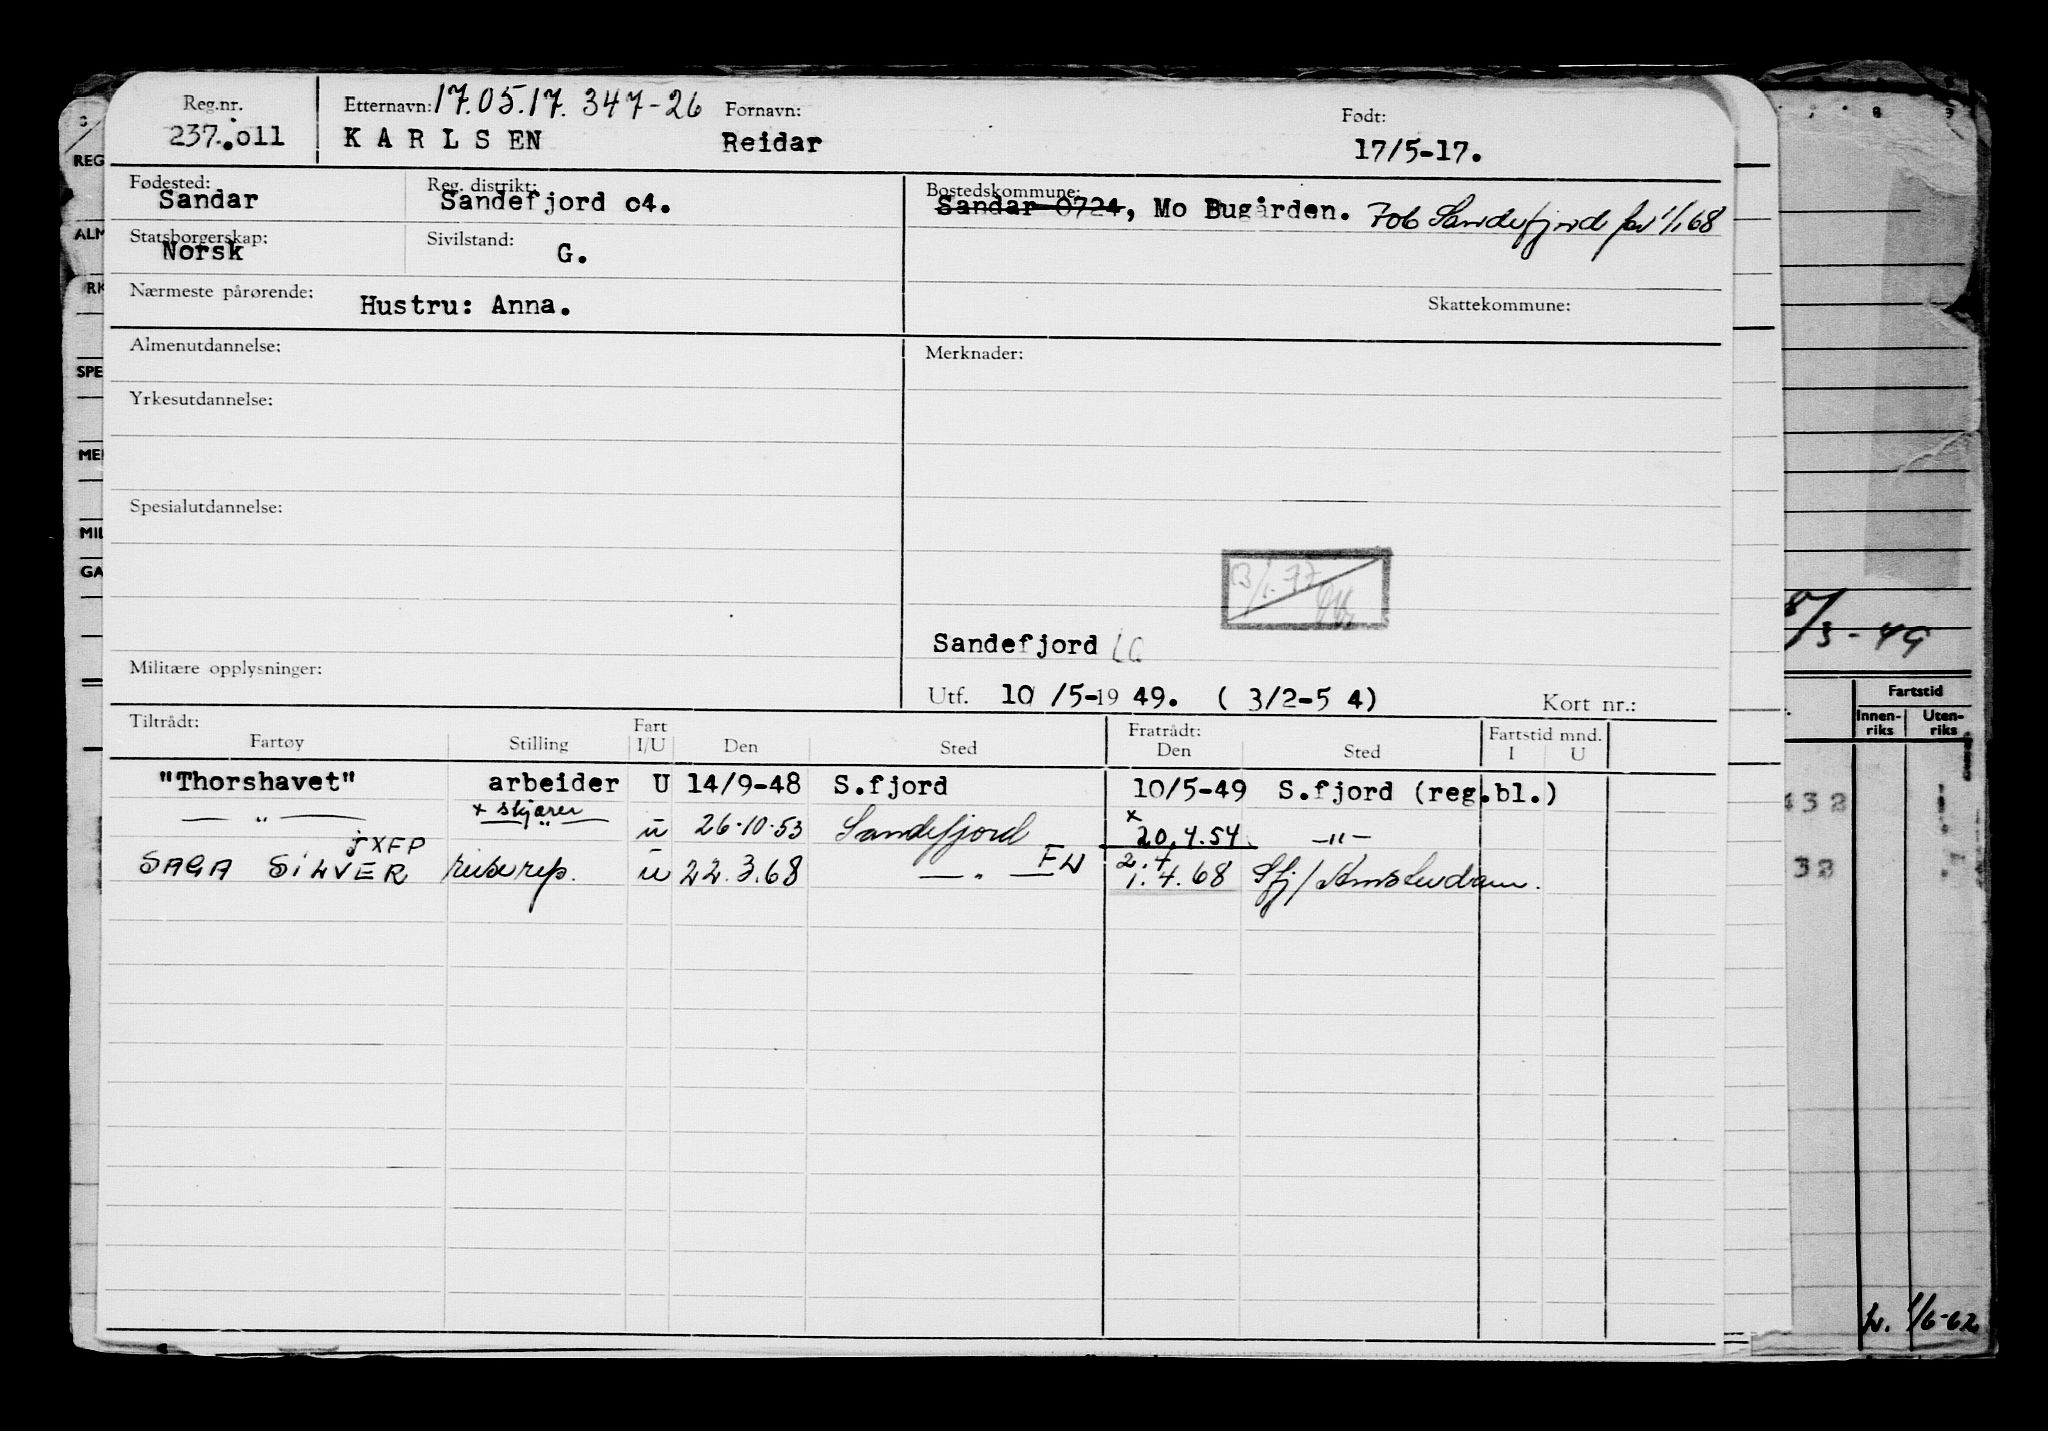 Reg.nr. Etternavn: 17.05.17. 347-26 Fornavn: Født:
237.011 KARLSEN Reidar 17/5-17.
Fødested: Reg. distrikt: Bostedskommune:
Sandar Sandefjord o4. Sandar 0724, Mo Bugården. 706 Sandefjord fra 1/1 68
Statsborgerskap: Sivilstand:
Norsk G.
Nærmeste pårørende: Hustru: Anna. Skattekommune:
Almenutdannelse: Merknader:
Yrkesutdannelse:
Spesialutdannelse:
13/1.77
Sandefjord
Militære opplysninger:
Utf. 10/5-19 49. ( 3/2-5 4) Kort nr.:
Tiltrådt: Fart Fratrådt: Fartstid mnd.
Fartøy Stilling I/U Den Sted Den Sted I U
"Thorshavet" arbeider U 14/9-48 S.fjord 10/5-49 S.fjord (reg.bl.)
— " — x skjærer " u 26.10.53 Sandefjord x 20.4.54 — " —
JXFP
SAGA SILVER reiserep. u 22.3.68 — " — FW 2.4 1.4.68 Sfj/Amsterdam.
REG
ALM
SPE
MIL
GA
8/3-49
Fartstid
Innen-riks Uten-riks
432
32
1/6-62